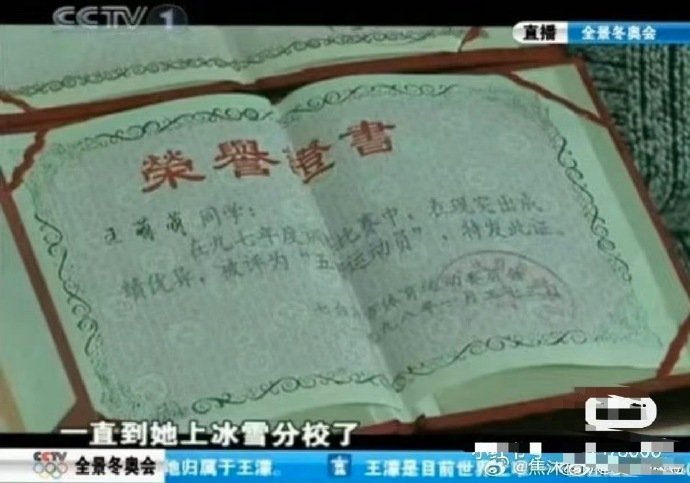 CCTV 1
直播 全景冬奥会
榮譽證書
王萌萌同学：
在九七年度 比赛中，表现突出成
绩优异，被评为“五 运动员”，特发此证。
体育运动委员会
一九九八年一月
一直到她上冰雪分校了
CCTV 全景冬奥会 地归属于王濛。 王濛是目前世界
@焦沫